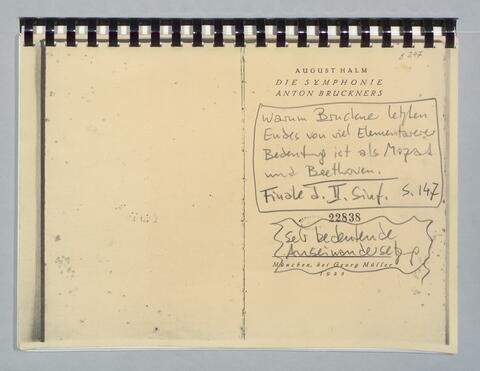 B 247
AUGUST HALM
DIE SYMPHONIE
ANTON BRUCKNERS
Warum Bruckner letzten
Endes von viel Elementarerer
Bedeutung ist als Mozart
und Beethoven.
Finale d. II. Sinf. S. 147
22838
Sehr bedeutende
Auseinandersetzg.
München, bei Georg Müller
1923